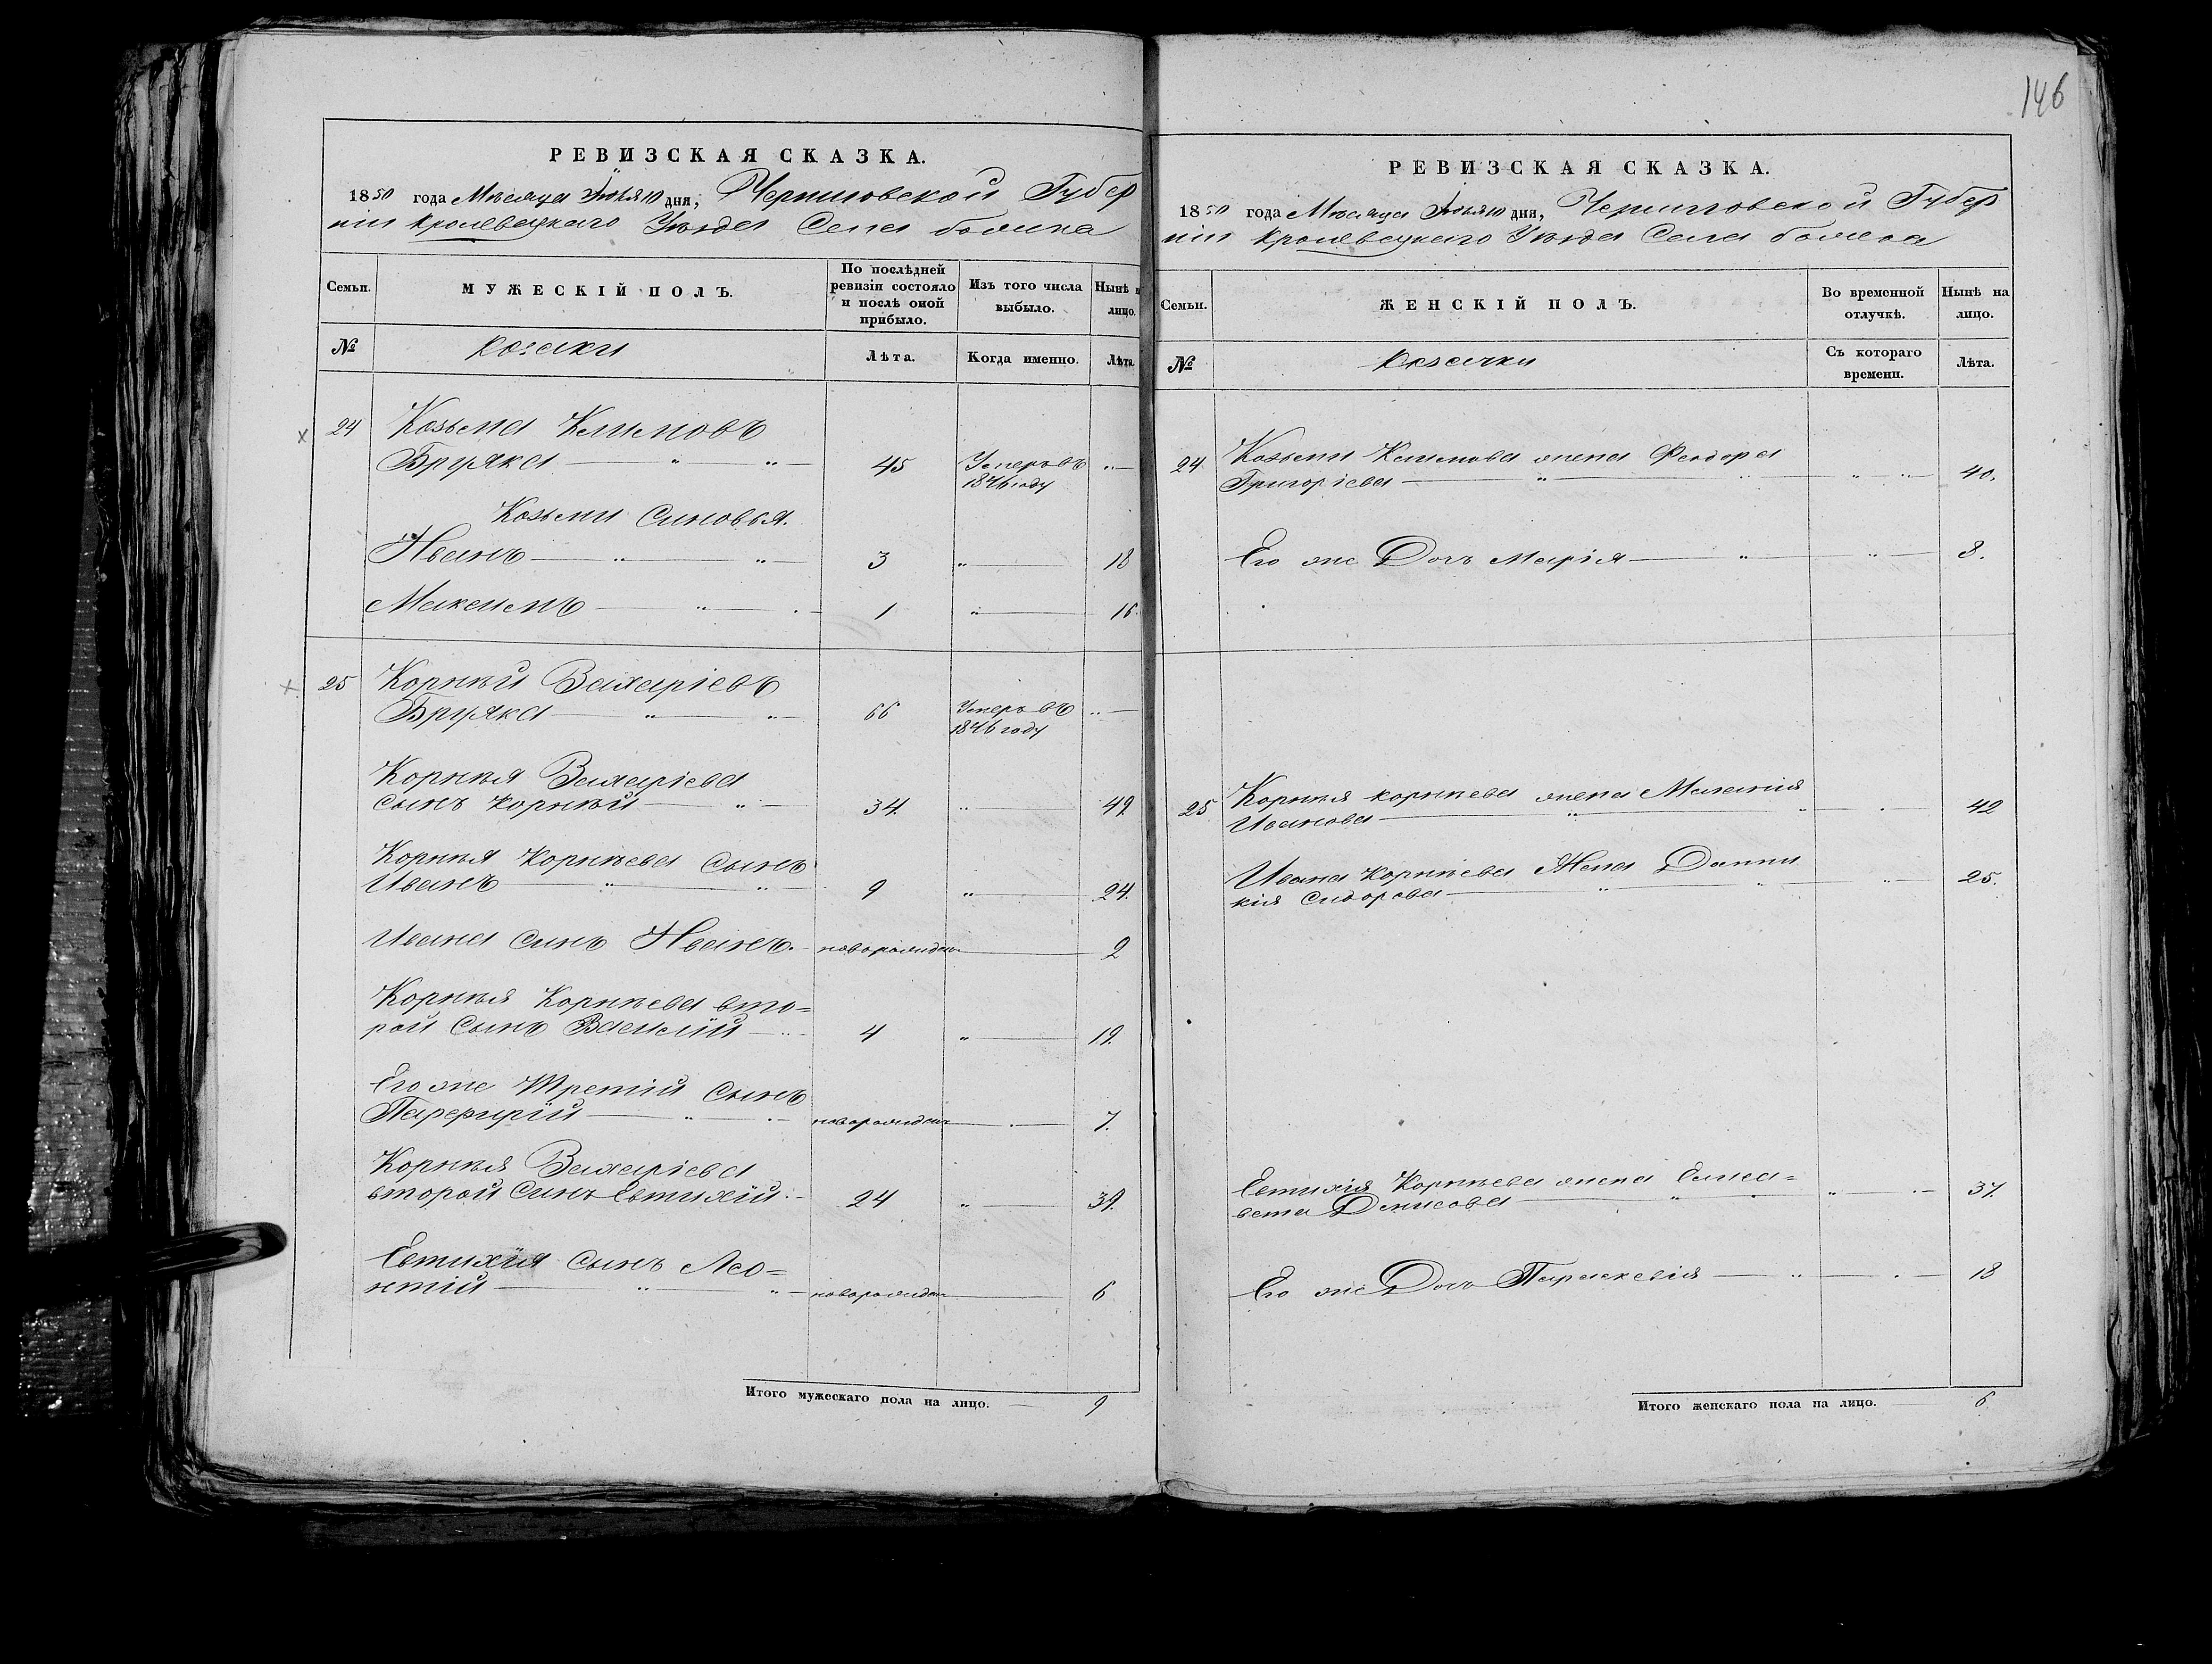 146
РЕВИЗСКАЯ СКАЗКА.
1850 года Мѣсяца Іюля 10 дня, Черниговской Губер
ніи Кролевецкаго Уѣзда Села
Семьи.
МУЖЕСКІЙ ПОЛЪ.
По послѣдней ревизіи состояло и послѣ оной прибыло.
Изъ того числа выбыло.
Нынѣ на лицо.
№
козаки
Лѣта.
Когда именно.
Лѣта.
24 Козьма Климовъ
Бруяка — " — " — 45 Умеръ въ "—
1846 году
Козьми Синовья.
Иванъ — " — " — 3 " — 18
Максимъ — " — 1 " — 16.
25 Корнѣй Захаріевъ
Бруяка — " — " — 66 Умеръ въ "—
1846 году
Корнѣя Захаріева
сынъ Корнѣй — " — 34. " — 49.
Корнѣя Корнѣева Сынъ
Иванъ — " — " 9 " — 24.
Ивана синъ Иванъ. — новорожден — 2
Корнѣя Корнѣева вто=
рой Сынъ Василій — " 4 " — 19.
Его же Третій Сынъ
Парфирій — " — новорожден — 7.
Корнѣя Захаріева
второй Синъ Евтихій. — 24 " — 39.
Евтихія Сынъ Лео=
нтій — " — " — новорожден — 6
Итого мужескаго пола на лицо. — 9
РЕВИЗСКАЯ СКАЗКА.
1850 года Мѣсяца Іюля 10 дня, Черниговской Губер
ніи Кролевецкаго Уѣзда Села
Семьи.
ЖЕНСКІЙ ПОЛЪ.
Во временной отлучкѣ.
Нынѣ на лицо.
№
козачки
Съ котораго времени.
Лѣта.
24 Козьми Климова жена Феодора
Григоріева — " — " — " " — 40.
Его же Дочъ Марія — " — " — 8.
25 Корнѣя Корнѣева жена Маланія
Иванова — " — " — 42
Ивана Корнѣева Жена Домни
кія Сидорова — " — " — 25.
Евтихія Корнѣева жена Елиса=
вета Денисова — " — " — 37.
Его же Дочъ Параскевія — " — 18
Итого женскаго пола на лицо. — 6